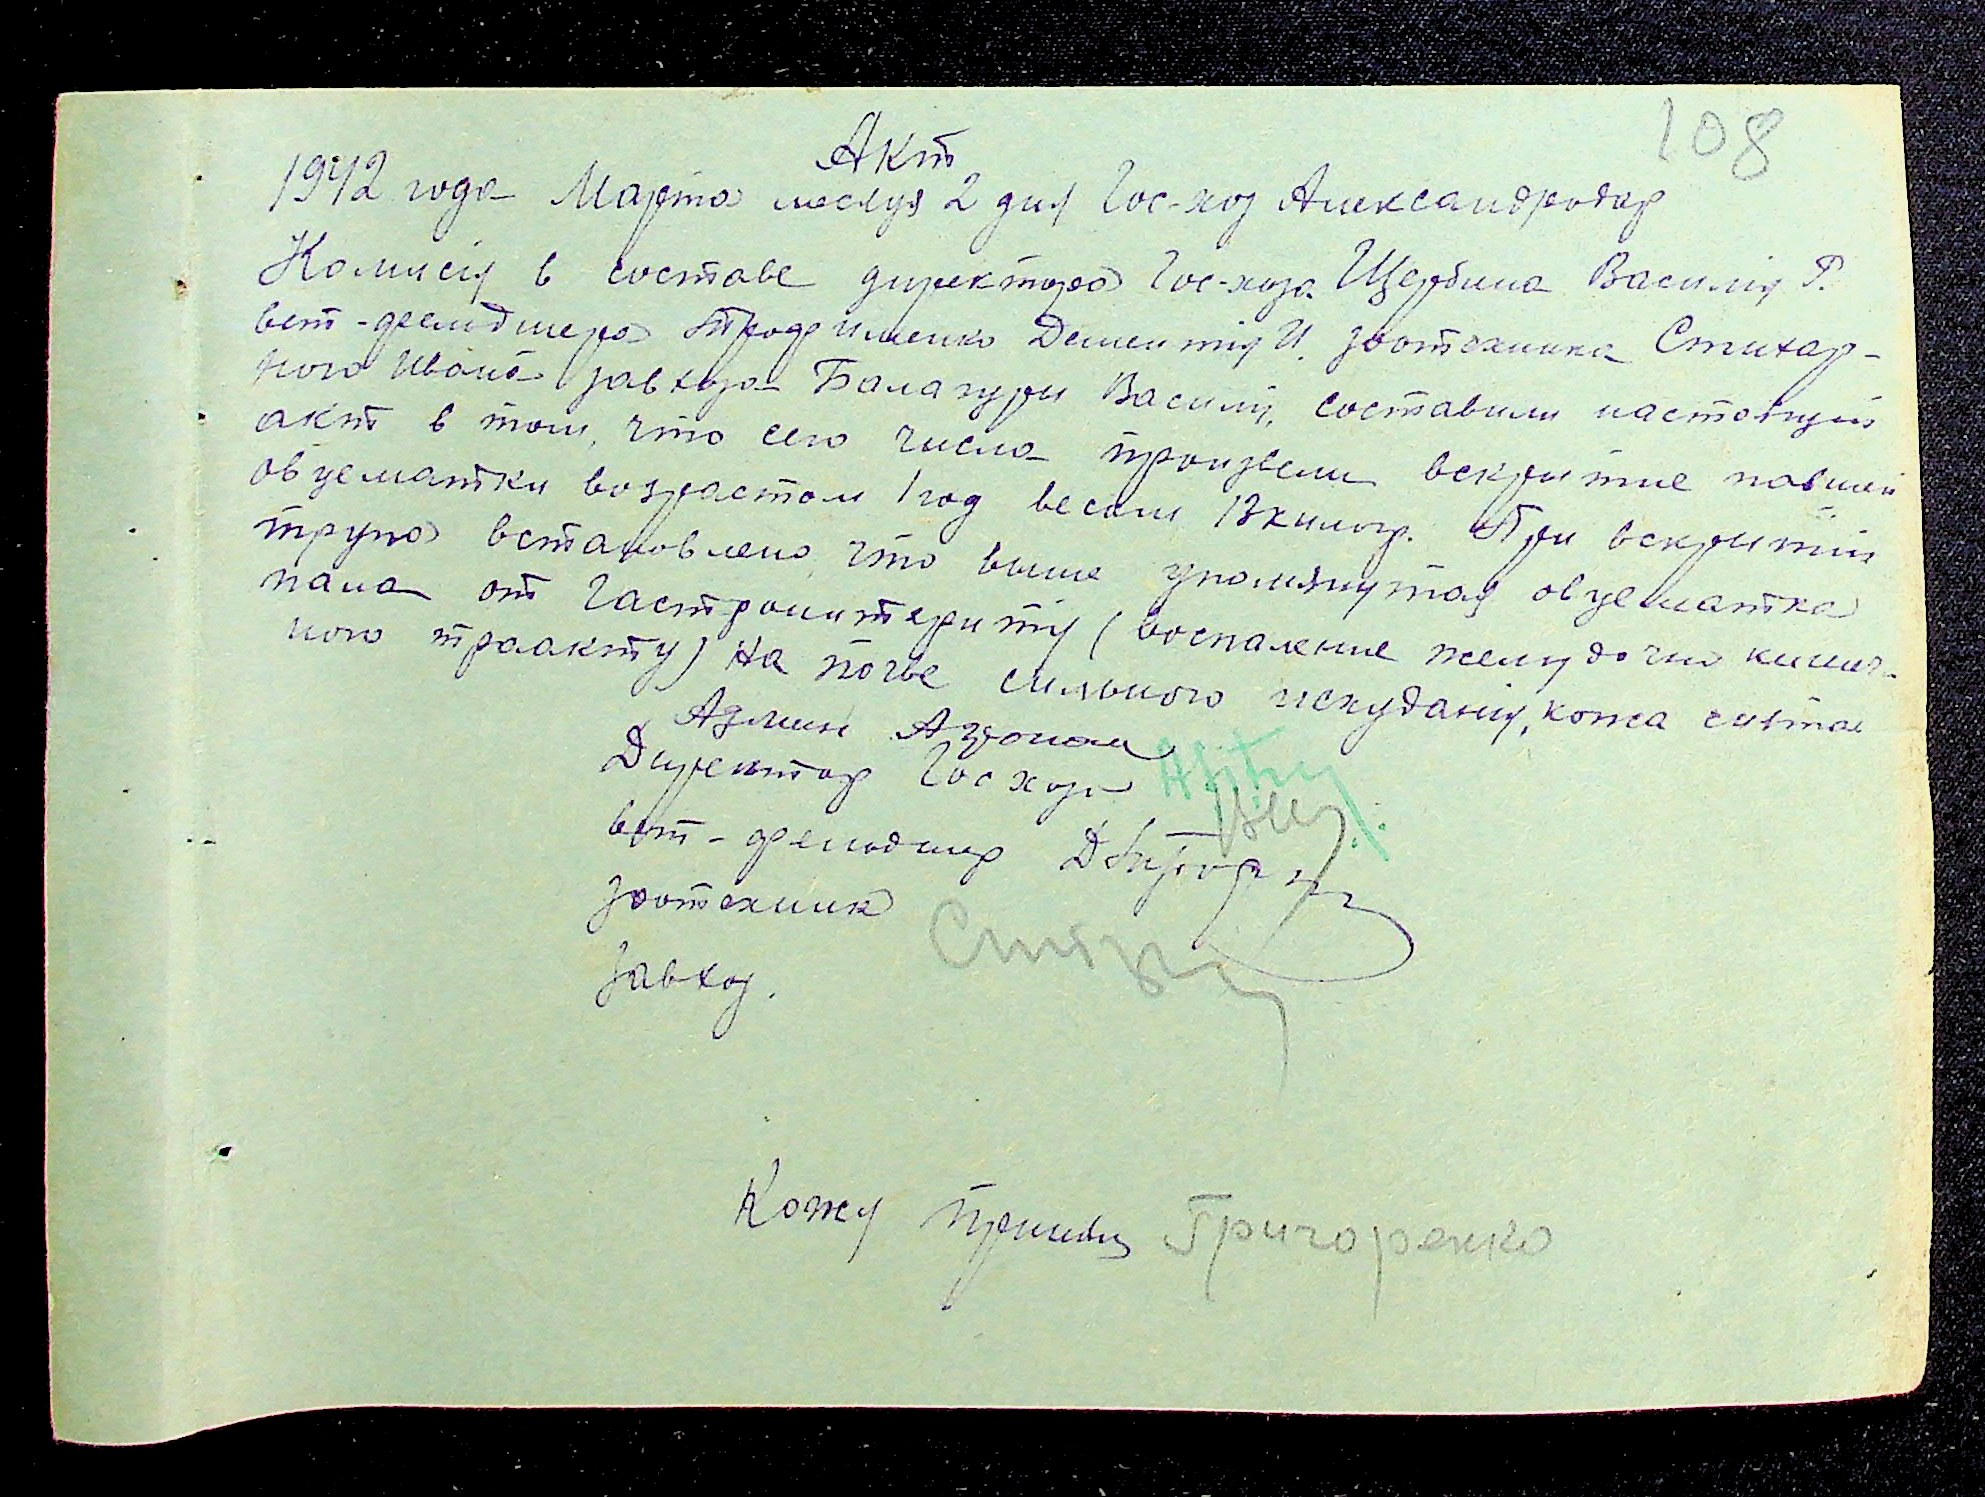 108
Акт
1942 года Марта месяця 2 дня Гос-хоз Александродар
Комисия в составе директора Гос-хоза Щербина Василия Р.
вет-фельдшера Трофименко Дементия И. зоотехника Стихар-
ного Ивана завхоза Балагуры Василия, составили настоящий
акт в том, что сего числа произвели вскрытие павшей
овцематки возрастом 1 год весом 13 килогр. При вскрытии
трупа встановлено, что выше упомянутая овцематка
пала от Гастроинтериту (воспаление желудочно кишеч-
ного тракту) На почве сильного исхудания, кожа снята
Админ Агроном
Директор Гос хоза
вет-фельдшер
зоотехник
Завхоз.
Кожу принял Григоренко